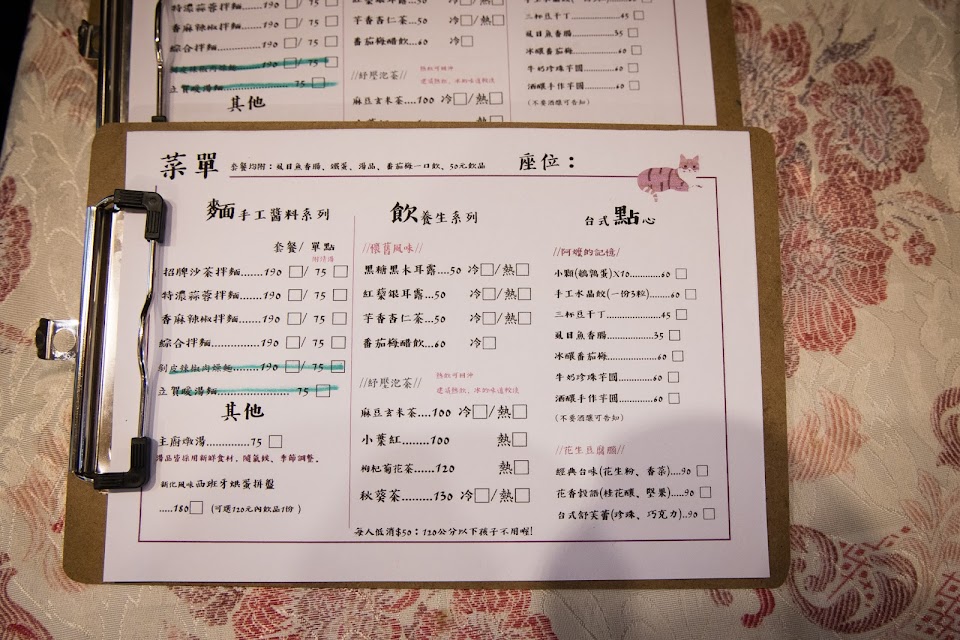 特濃蒜蓉拌麵......190 / 75
香麻辣椒拌麵......190 / 75
綜合拌麵............190 / 75
剝皮辣椒肉燥麵......190 / 75
立賀暖湯麵............ 75
其他
紅藜銀耳露...50 冷/熱
芋香杏仁茶...50 冷/熱
番茄梅醋飲...60 冷
//紓壓泡茶//
熱飲可回沖
建議熱飲，冰的味道較淡
麻豆玄米茶....100 冷/熱
三杯豆干丁....................45
虱目魚香腸....................35
冰釀番茄梅....................60
牛奶珍珠芋圓.............60
酒釀手作芋圓.............60
(不要酒釀可告知)
菜單 套餐均附：虱目魚香腸、鐵蛋、湯品、番茄梅一口飲、50元飲品 座位：
麵 手工醬料系列
套餐/ 單點
附清湯
招牌沙茶拌麵.......190 / 75
特濃蒜蓉拌麵.......190 / 75
香麻辣椒拌麵.......190 / 75
綜合拌麵.............190 / 75
剝皮辣椒肉燥麵.......190 / 75
立賀暖湯麵.................. 75
其他
主廚燉湯..............75
湯品皆採用新鮮食材，隨氣候、季節調整。
新化風味西班牙烘蛋拼盤
.....180 (可選120元內飲品1份)
飲 養生系列
//懷舊風味//
黑糖黑木耳露....50 冷/熱
紅藜銀耳露...50 冷/熱
芋香杏仁茶...50 冷/熱
番茄梅醋飲...60 冷
//紓壓泡茶//
熱飲可回沖
建議熱飲，冰的味道較淡
麻豆玄米茶....100 冷/熱
小葉紅........100 熱
枸杞菊花茶......120 熱
秋葵茶.........130 冷/熱
台式 點心
//阿嬤的記憶/
小顆(鵪鶉蛋)X10............60
手工水晶餃(一份3粒)........60
三杯豆干丁....................45
虱目魚香腸..................35
冰釀番茄梅....................60
牛奶珍珠芋圓.............60
酒釀手作芋圓.............60
(不要酒釀可告知)
//花生豆腐腦//
經典台味(花生粉、香菜)...90
花香穀語(桂花釀、堅果).....90
台式舒芙蕾(珍珠、巧克力)..90
每人低消$50；120公分以下孩子不用喔!